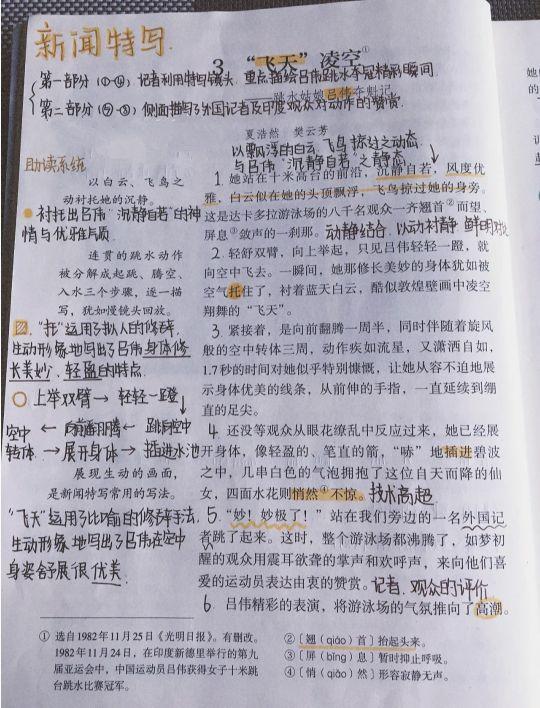 新闻特写
3 “飞天”凌空①
第一部分(①-④)记者利用特写镜头,重点描绘吕伟跳水夺冠精彩瞬间
——跳水姑娘吕伟夺魁记
第二部分(⑤-⑥)侧面描写了外国记者及印度观众对动作的赞赏.
夏浩然 樊云芳
以飘浮的白云、飞鸟掠过之动态
与吕伟“沉静自若”之静态
助读系统
以白云、飞鸟之
动衬托她的沉静。
衬托出吕伟“沉静自若”的神
情与优雅气质
连贯的跳水动作
被分解成起跳、腾空、
入水三个步骤,逐一描
写,犹如慢镜头回放。
“托”运用了拟人的修辞,
生动形象地写出了吕伟身体修
长美妙、轻盈的特点
上举双臂→轻轻一蹬
空中 ← 向前翻腾 ← 跳向空中
转体 → 展开身体 → 插进水池
展现生动的画面,
是新闻特写常用的写法。
“飞天”运用了比喻的修辞手法,
生动形象地写出了吕伟在空中
身姿舒展很优美
1. 她站在十米高台的前沿,沉静自若,风度优
雅,白云似在她的头顶飘浮,飞鸟掠过她的身旁。
这是达卡多拉游泳场的八千名观众一齐翘首②而望、
屏息③敛声的一刹那。动静结合,以动衬静 鲜明对比
2. 轻舒双臂,向上举起,只见吕伟轻轻一蹬,就
向空中飞去。一瞬间,她那修长美妙的身体犹如被
空气托住了,衬着蓝天白云,酷似敦煌壁画中凌空
翔舞的“飞天”。
3. 紧接着,是向前翻腾一周半,同时伴随着旋风
般的空中转体三周,动作疾如流星,又潇洒自如,
1.7秒的时间对她似乎特别慷慨,让她从容不迫地展
示身体优美的线条,从前伸的手指,一直延续到绷
直的足尖。
4. 还没等观众从眼花缭乱中反应过来,她已经展
开身体,像轻盈的、笔直的箭,“哧”地插进碧波
之中,几串白色的气泡拥抱了这位自天而降的仙
女,四面水花则悄然④不惊。技术高超
5. “妙!妙极了!”站在我们旁边的一名外国记
者跳了起来。这时,整个游泳场都沸腾了,如梦初
醒的观众用震耳欲聋的掌声和欢呼声,来向他们喜
爱的运动员表达由衷的赞赏。记者、观众的评价
6. 吕伟精彩的表演,将游泳场的气氛推向了高潮。
① 选自1982年11月25日《光明日报》。有删改。
1982年11月24日,在印度新德里举行的第九
届亚运会中,中国运动员吕伟获得女子十米跳
台跳水比赛冠军。
②〔翘(qiáo)首〕抬起头来。
③〔屏(bǐng)息〕暂时抑止呼吸。
④〔悄(qiǎo)然〕形容寂静无声。